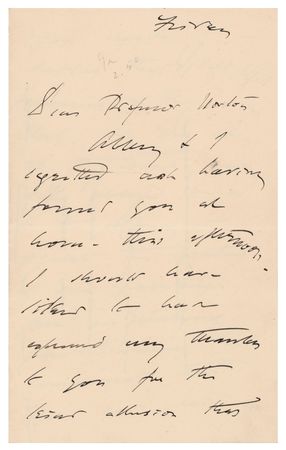 Friday
Dear Professor Norton
Abbey & I
regretted not having
found you at
home this afternoon.
I should have
liked to have
expressed my thanks
to you for the
kind allusion that